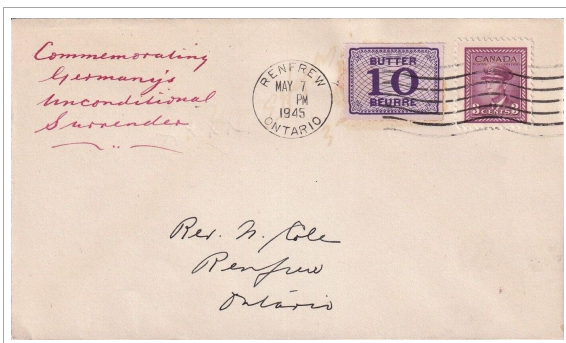 Commemorating
Germany's
Unconditional
Surrender
RENFREW
MAY 7
PM
1945
ONTARIO
BUTTER
10
BEURRE
CANADA
3 CENTS 3
Rev. N. Cole
Renfrew
Ontario